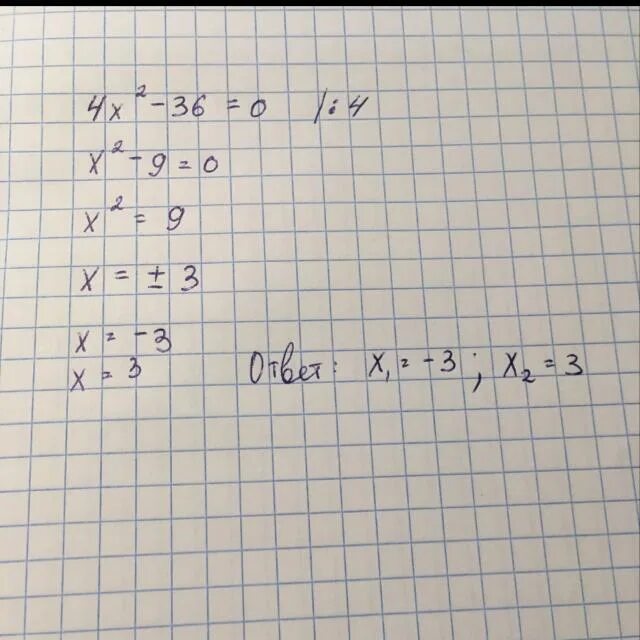 4x² - 36 = 0 /:4
x² - 9 = 0
x² = 9
x = ± 3
x = -3
x = 3
Ответ: x₁ = -3 ; x₂ = 3